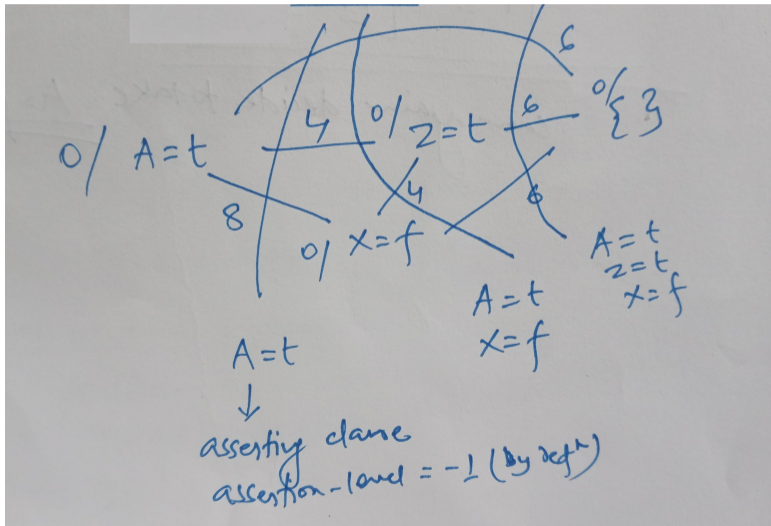 6
0/ A=t 4 0/ Z=t 6 0/ { }
8 0/ X=f 4 6
A=t
X=f
A=t
Z=t
X=f
A=t
↓
asserting clause
assertion-level = -1 (by defⁿ)